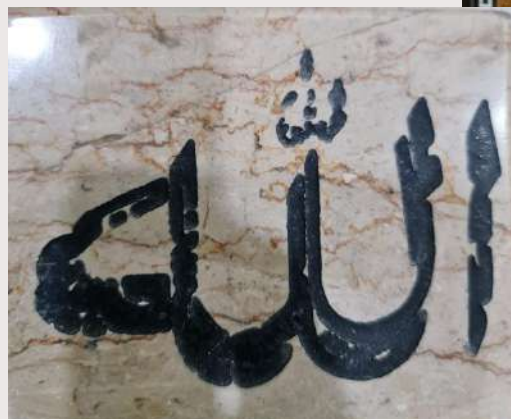 اللّٰه